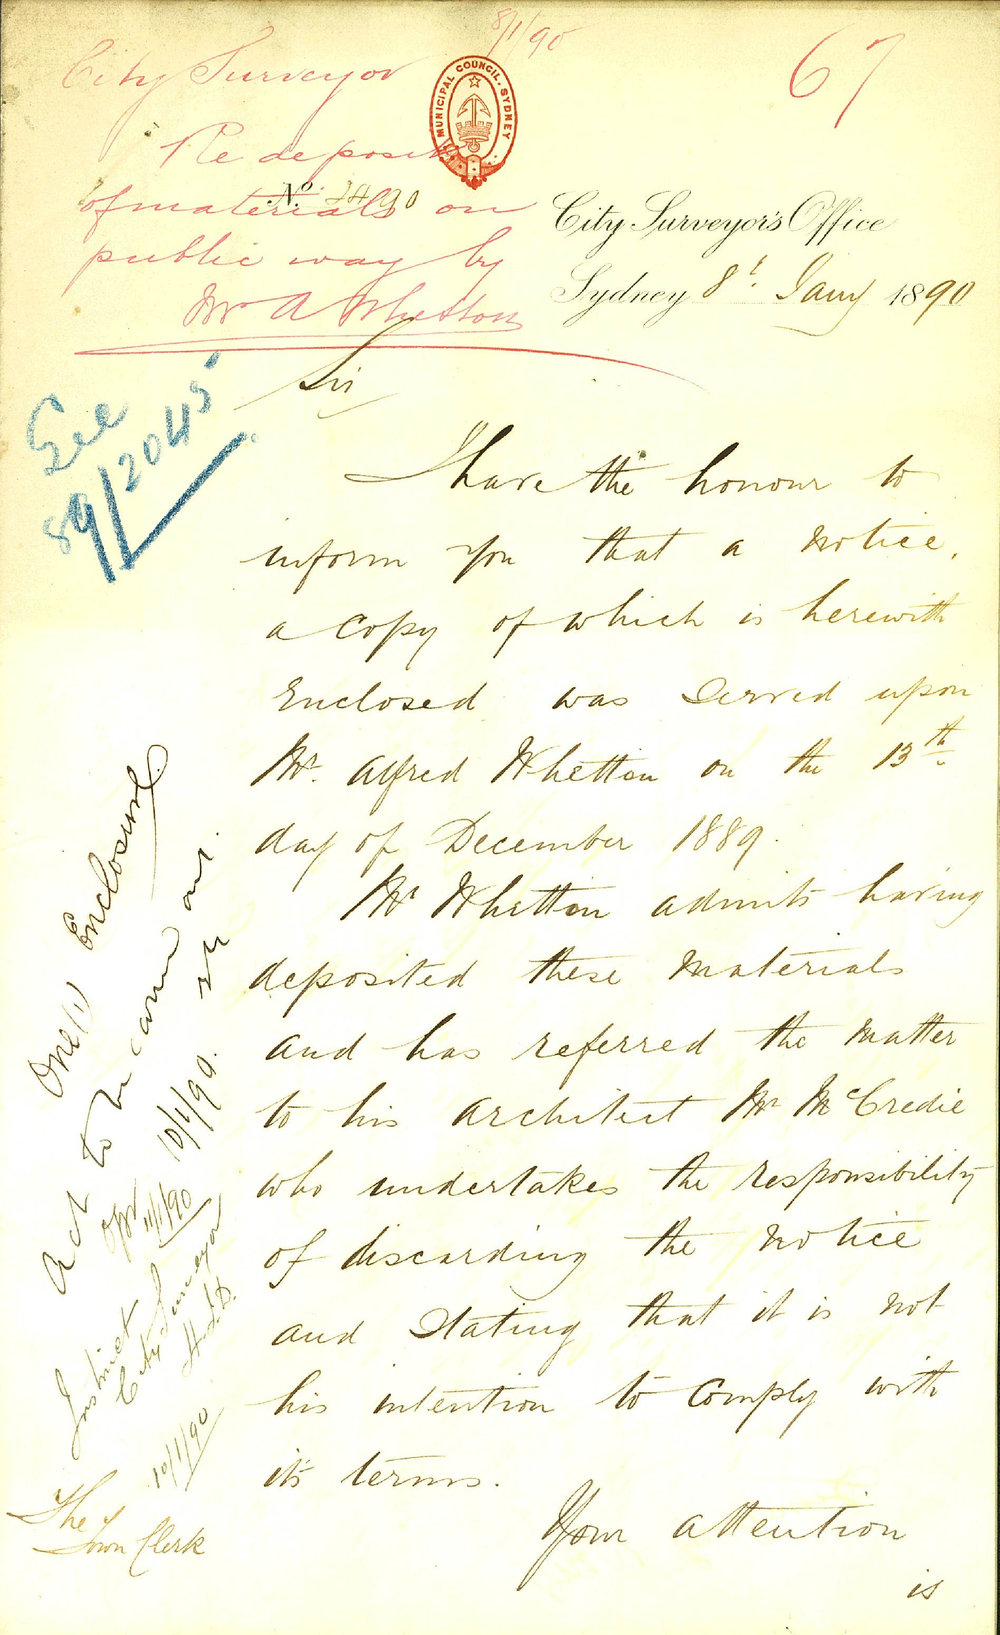 8/1/90
67
City Surveyor
Re deposit
of materials on
public way by
Mr A Whetton
MUNICIPAL COUNCIL. SYDNEY
No. 90
City Surveyor's Office
Sydney 8t. Jany 1890
See
89/2045
Sir
I have the honour to
inform you that a notice,
a copy of which is herewith
Enclosed was served upon
Mr. Alfred Whetton on the 13th
day of December 1889.
Mr Whetton admits having
deposited these Materials
and has referred the Matter
to his Architect Mr McCredie
who undertakes the responsibility
of discarding the notice
and stating that it is not
his intention to Comply with
its terms.
Your attention
is
One (1) Enclosure
Act to be carried out.
10/1/90.
11/1/90
Instruct
City Surveyor
10/1/90
The
Town Clerk